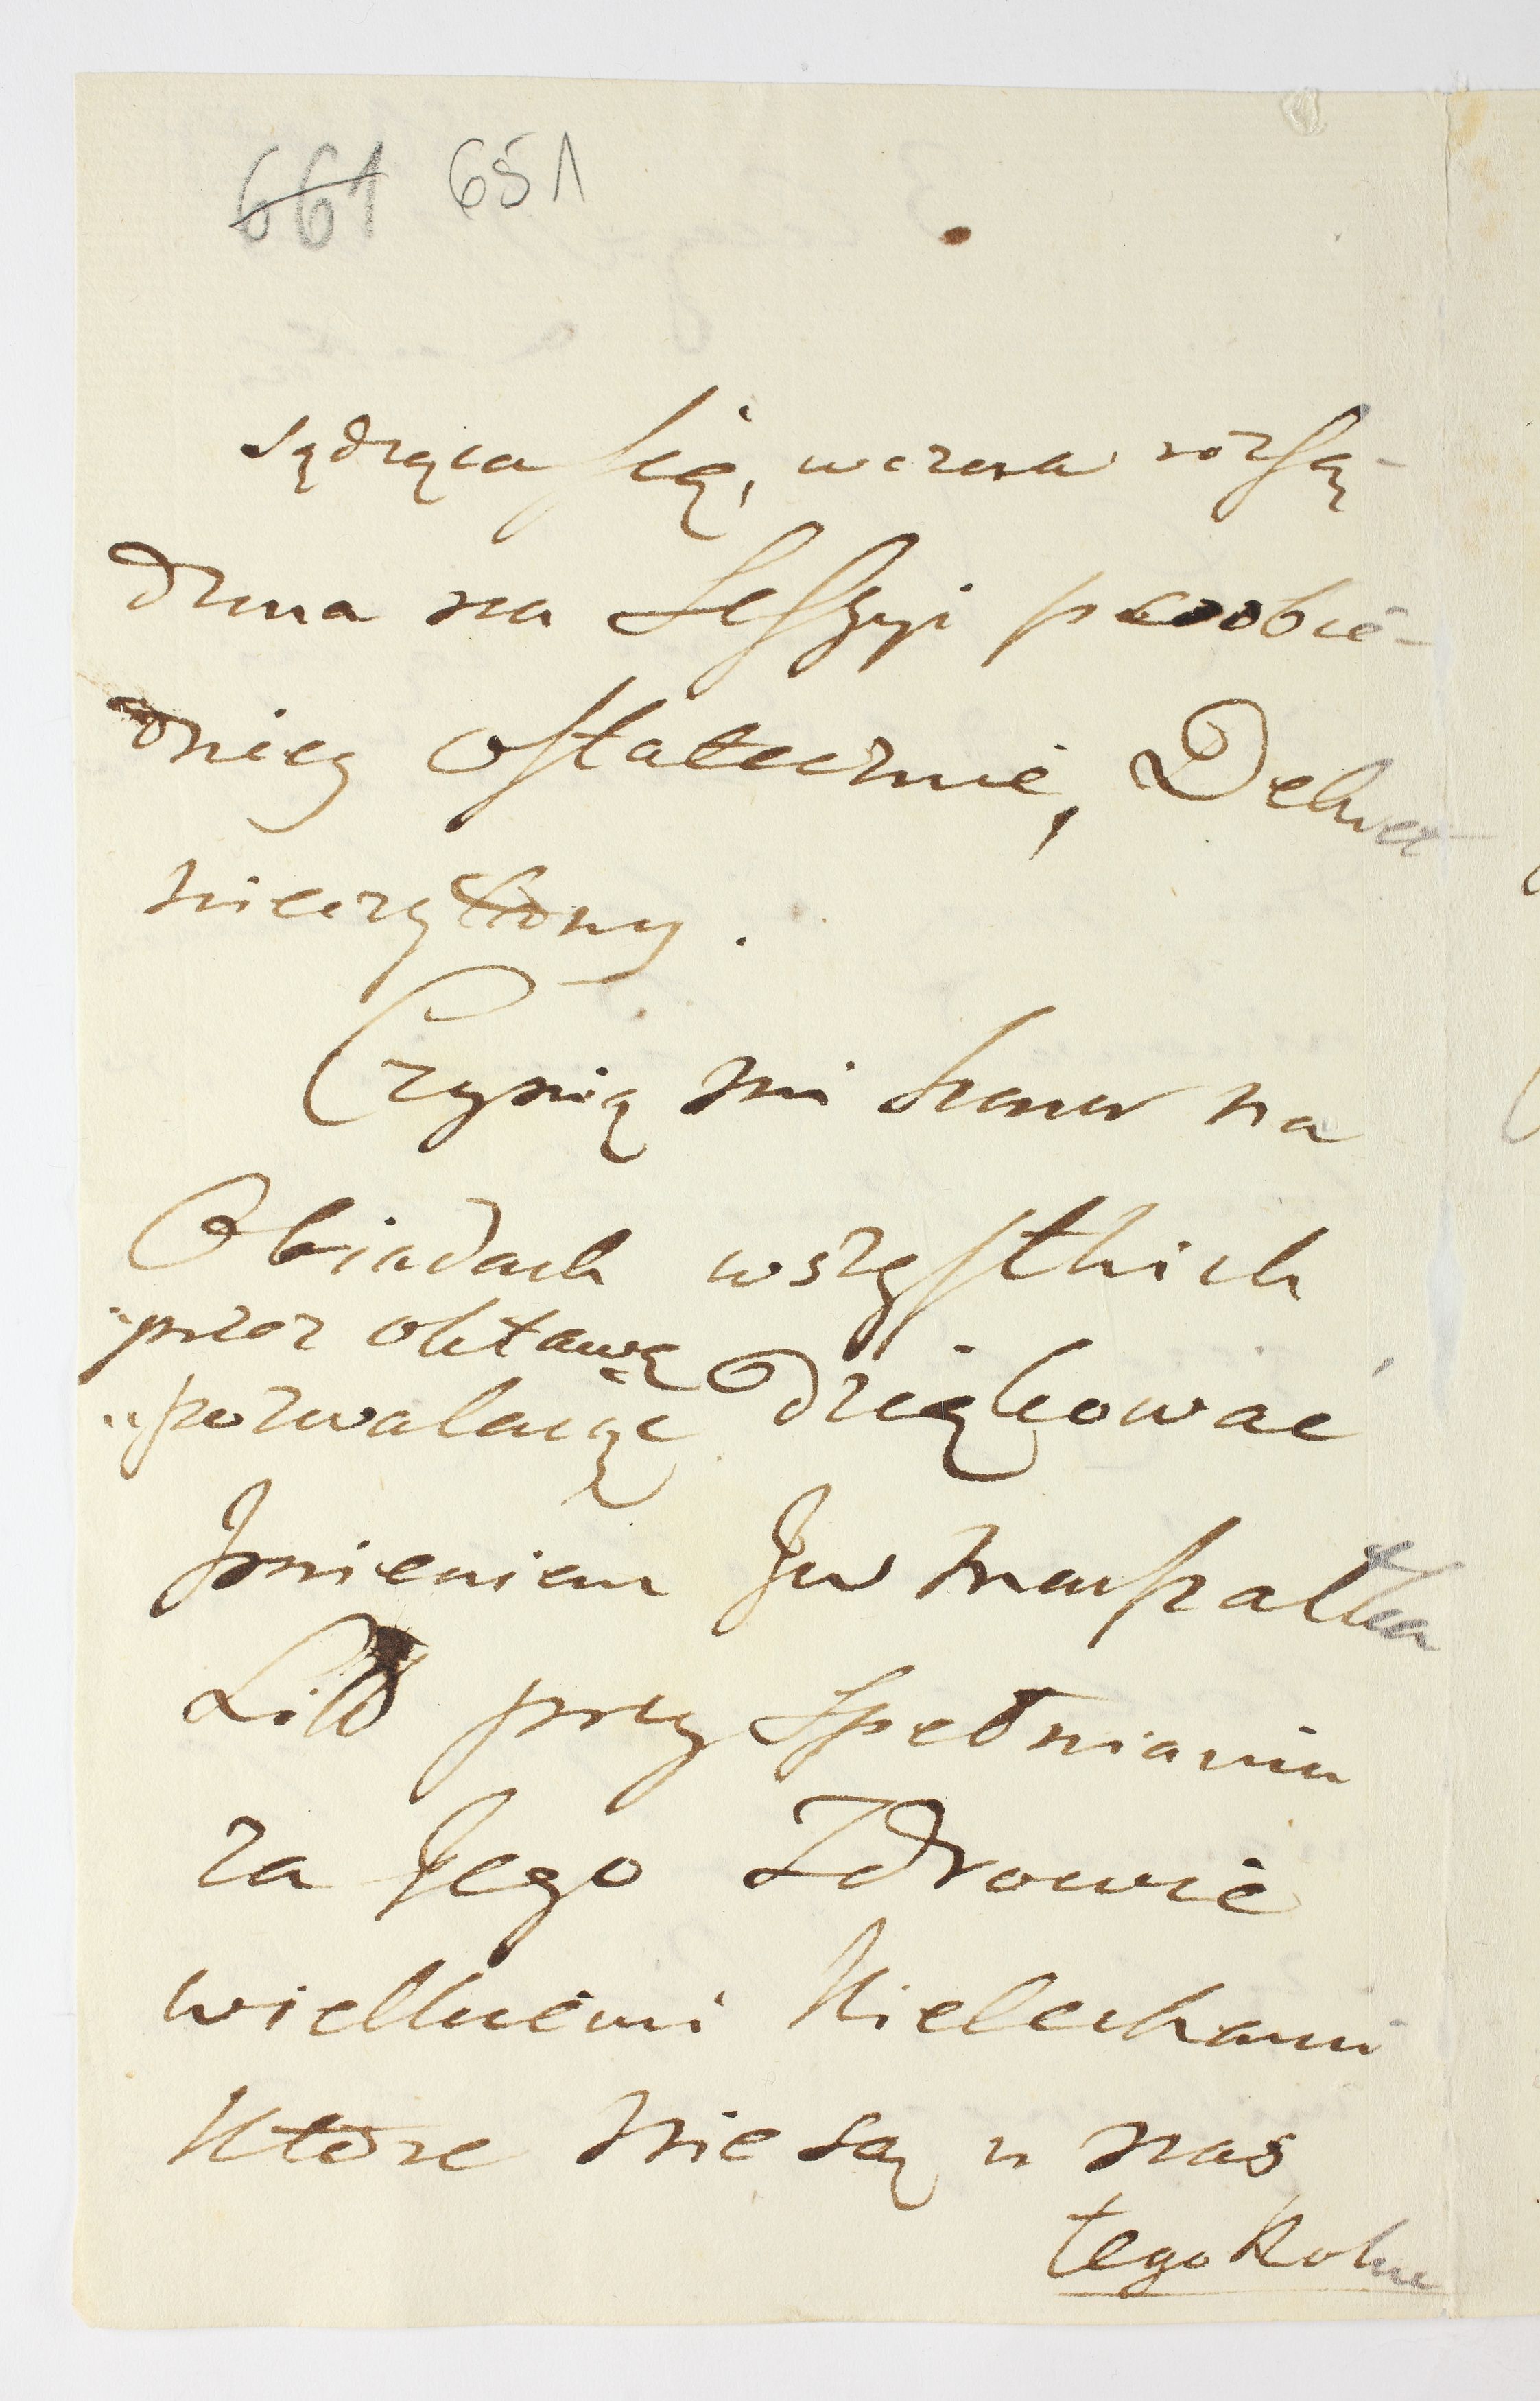 661 651
sądzącą się, wczora rozsą-
dzona na Sessyi poobie-
dniey ostatecznie, Dekret
nieczytany.
Czynią mi honor na
Obiadach wszystkich
przez oktawę
pozwalaiąc Dziękować
Jmieniem Jw Marszałka
Litt przy Spełnianiu
za Jego Zdrowie
wielkiemi Kielichami
które nie są u nas
tego Roku